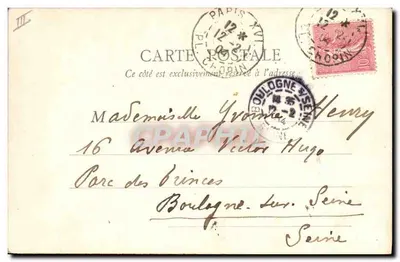 III
PARIS XVI
12
12-2
04
CHOPIN
12
12-2
04
CHOPIN
10
CARTE POSTALE
Ce côté est exclusivement réservé à l'adresse
BOULOGNE S/SEINE
12-2
04
Mademoiselle Yvonne Henry
16 Avenue Victor Hugo
Parc des Princes
Boulogne sur Seine
Seine